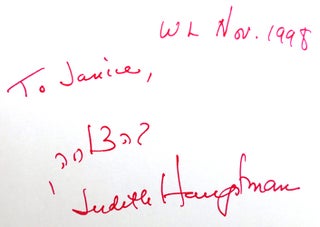 WL Nov. 1998
To Janice,
Judith Hauptman